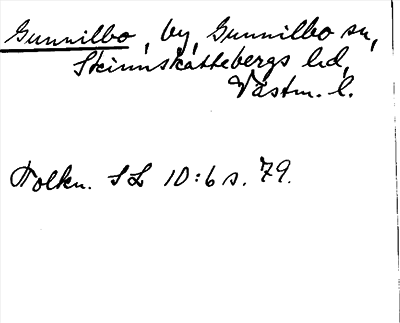 Gunnilbo, by, Gunnilbo sn,
Skinnskattebergs hd,
Västm. l.
Tolkn. SL 10:6 s. 79.